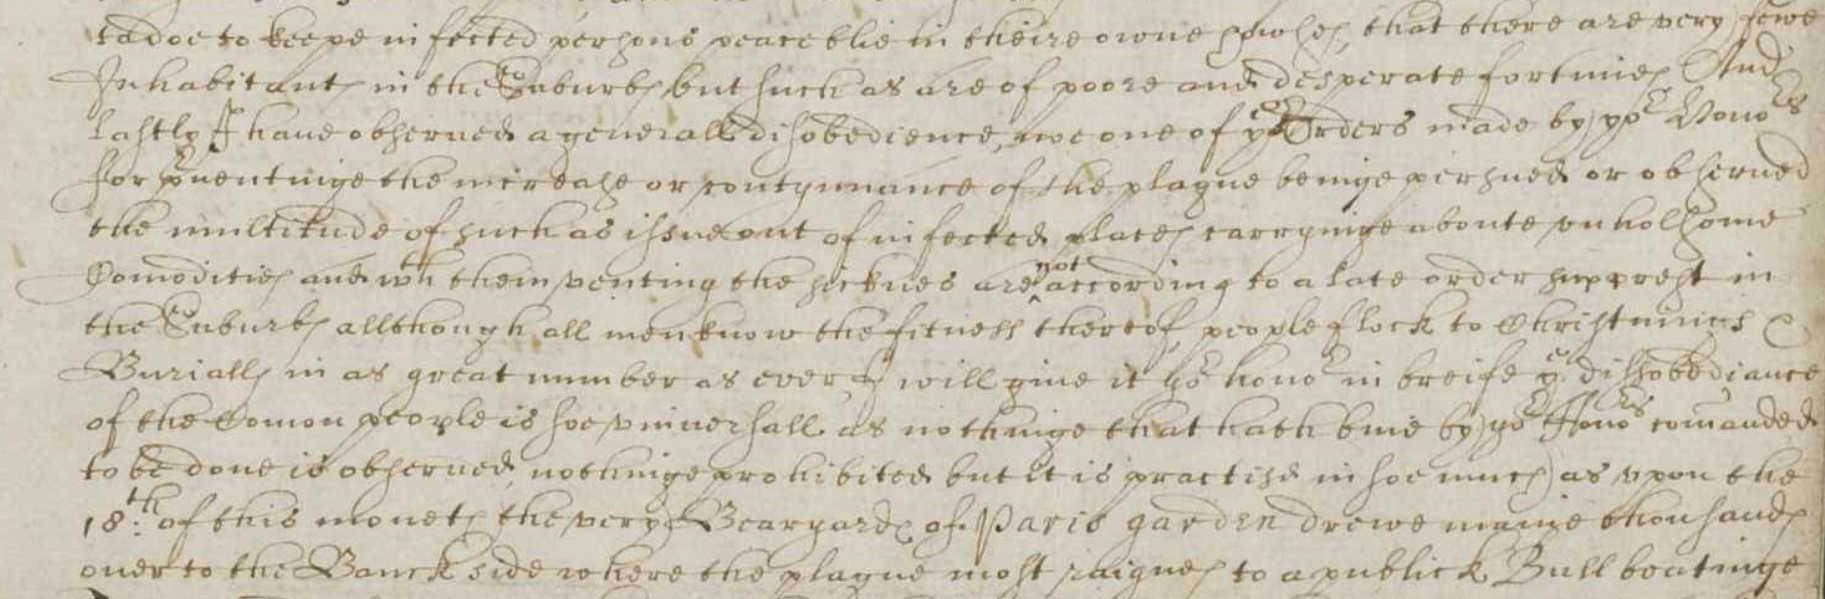 to keepe infected persons peaceblie in theire owne howses, that there are very fewe
Inhabitants in the Suburbs but such as are of poore and desperate fortunies And
lastly I haue obserued a generall disobedience, noe one of ye Orders made by yor Honors
for preuentinge the increase or contynnance of the plague beinge persued or obserued
the multitude of such as issue out of infected places carryinge aboute vnholsome
Comodities and wth them venting the sicknes are not according to a late order supprest in
the Suburbs allthough all men know the fitness thereof, people flock to Christnings &
Burialls in as great number as ever I will giue it yor honors in breife ye dissobediance
of the Comon people is soe vniuersall as nothinge that hath bine by yor Honors comanded
to be done is obserued, nothinge prohibited but it is practisd in soe much as vpon the
18:th of this moneth the very Bearyard of Paris garden drewe manie thousands
ouer to the Banckside where the plague most raignes to a publick Bull beatinge